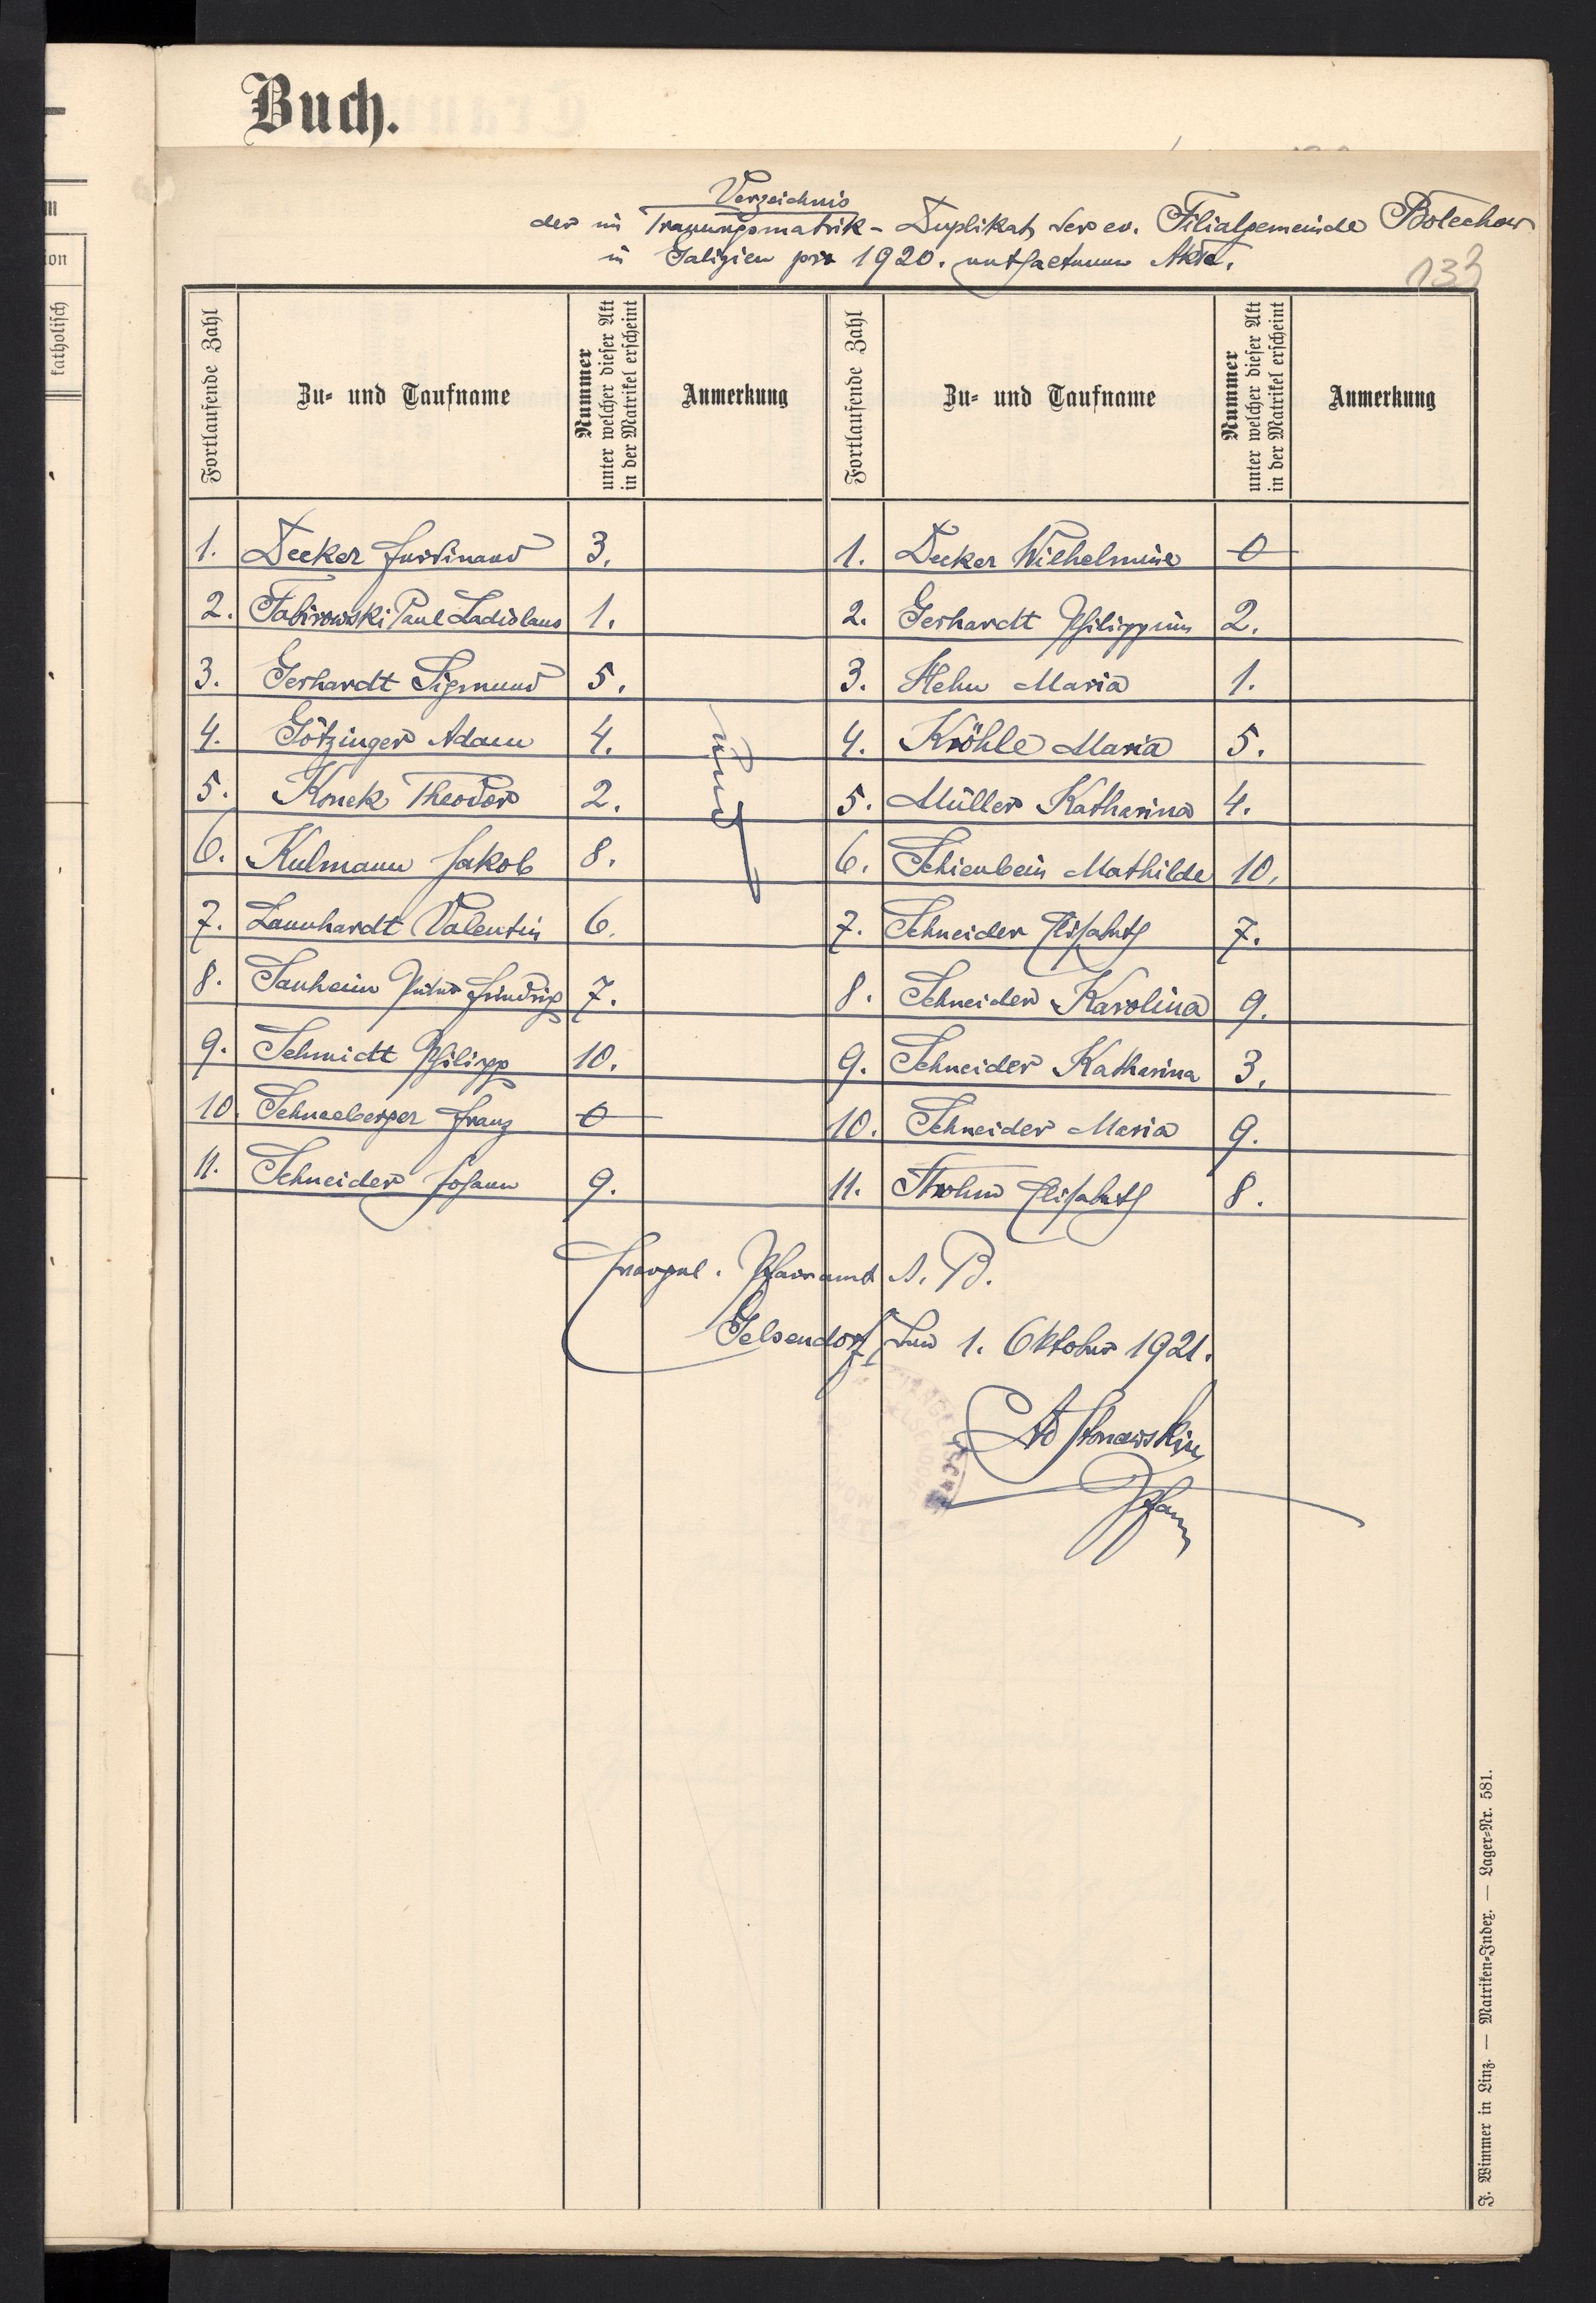 Buch.
Verzeichnis
der im Trauungsmatrik-Duplikat der ev. Filialgemeinde Bolechow
in Galizien pro 1920. enthaltenen Akte.
133
Fortlaufende Zahl
Zu- und Taufname
Nummer unter welcher dieser Akt in der Matrikel erscheint
Anmerkung
Fortlaufende Zahl
Zu- und Taufname
Nummer unter welcher dieser Akt in der Matrikel erscheint
Anmerkung
katholisch
1. Decker Ferdinand 3. 1. Decker Wilhelmine 0
2. Fabirowski Paul Ladislaus 1. 2. Gerhardt Philippine 2.
3. Gerhardt Sigmund 5. 3. Hehn Maria 1.
4. Götzinger Adam 4. 4. Kröhle Maria 5.
und
5. Konek Theodor 2. 5. Müller Katharina 4.
6. Kulmann Jakob 8. 6. Schienbein Mathilde 10.
7. Launhardt Valentin 6. 7. Schneider Elisabeth 7.
8. Sauheim Peter Friedrich 7. 8. Schneider Karolina 9.
9. Schmidt Philipp 10. 9. Schneider Katharina 3.
10. Schneeberger Franz 0 10. Schneider Maria 9.
11. Schneider Johann 9. 11. Strohm Elisabeth 8.
Evangel. Pfarramt A. B.
Gelsendorf, den 1. Oktober 1921.
Pfarrer
J. Wimmer in Linz. — Matriken-Index. — Lager-Nr. 581.